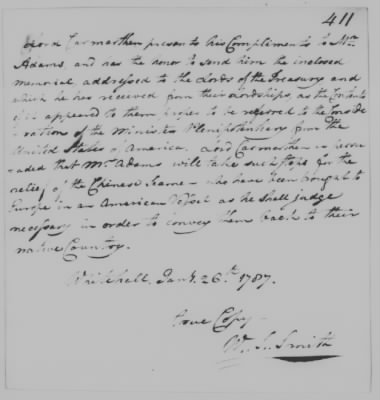 411
Lord Carmarthen presents his Compliments to Mr
Adams, and has the honor to send him the inclosed
memorial, addressed to the Lords of the Treasury and
which he has received from their Lordships, as the Contents
of it appeared to them proper to be referred to the Conside
rations of the Minister Plenipotentiary from the
United States of America. Lord Carmarthen is persu
=aded that Mr Adams will take such steps for the
relief of the Chinese Seamen who have been brought to
Europe in an American Vessel as he shall judge
necessary in order to convey them back to their
native Country.
Whitehall. Jany. 26th. 1787.
true Copy
W. S. Smith